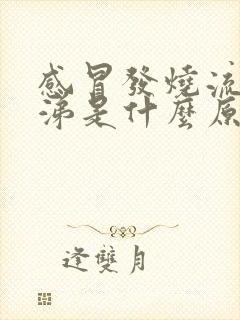 感冒發燒流
涕是什麼原
逢雙月